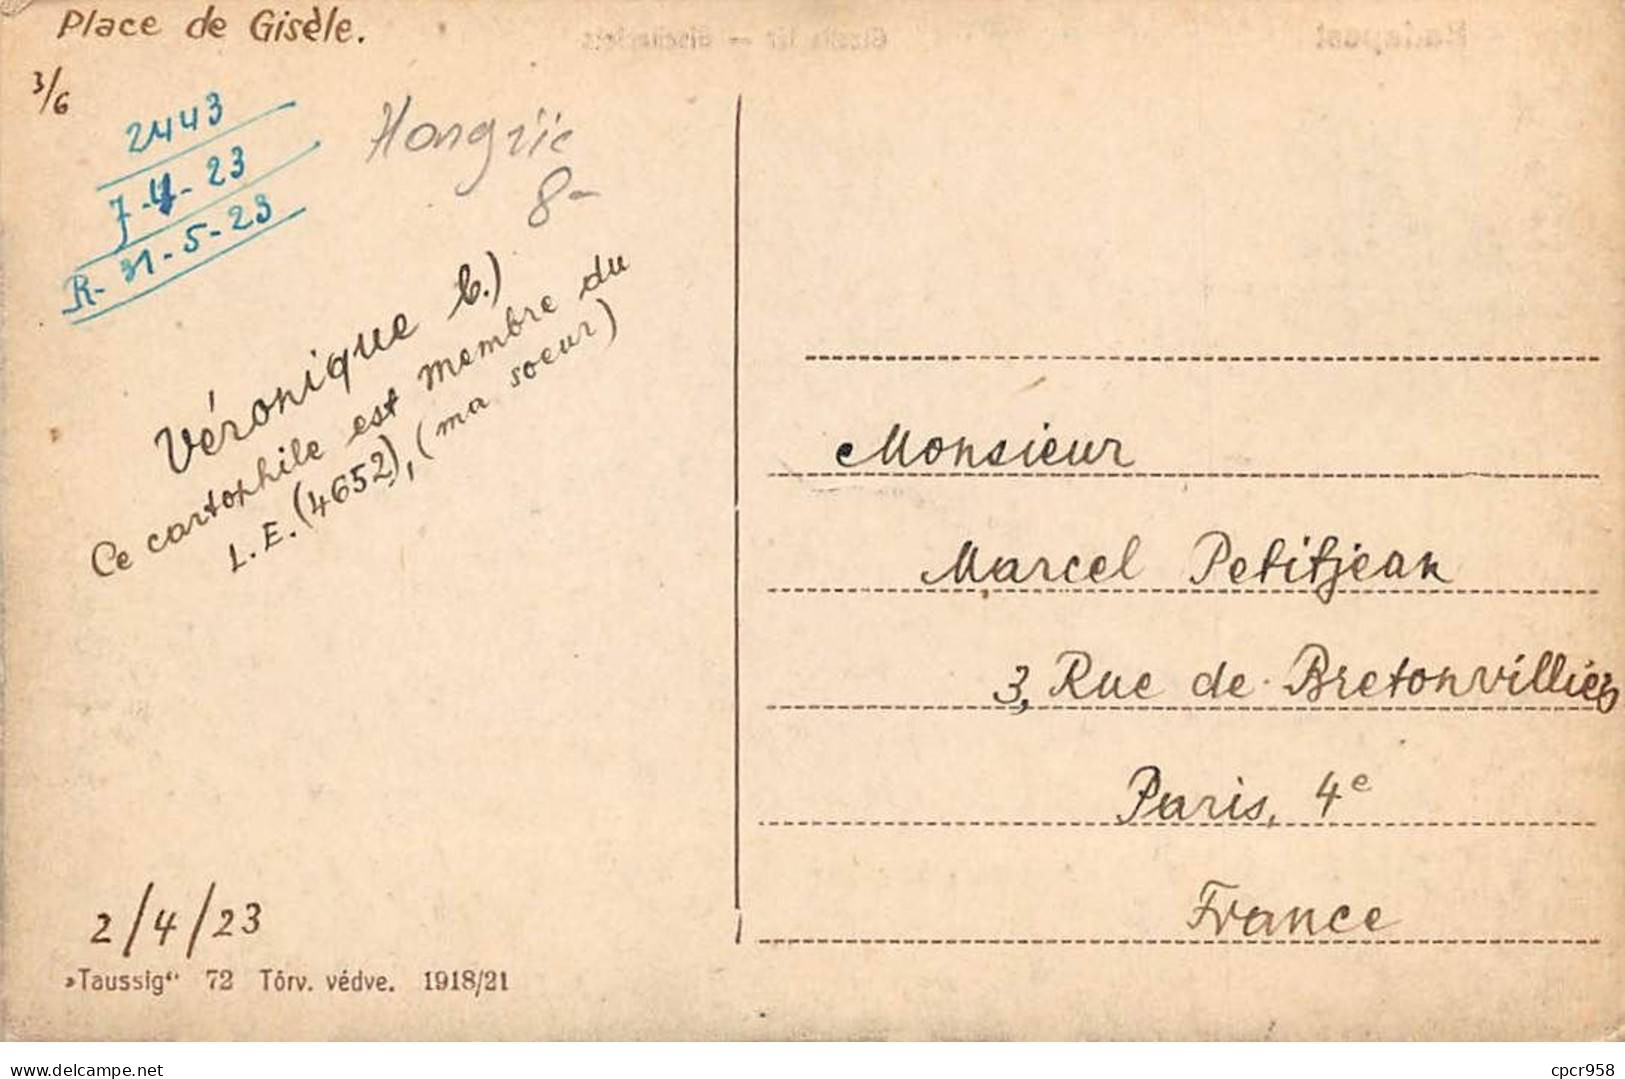 Place de Gisèle.
3/6
2443
7-4-23
R- 31-5-23
Hongrie
8-
Véronique b.)
Ce cartophile est membre du
L.E. (4652), (ma soeur)
Monsieur
Marcel Petitjean
3, Rue de Bretonvilliers
Paris, 4e
France
2/4/23
»Taussig“ 72 Törv. védve. 1918/21
Delcampe.net
cpcr958